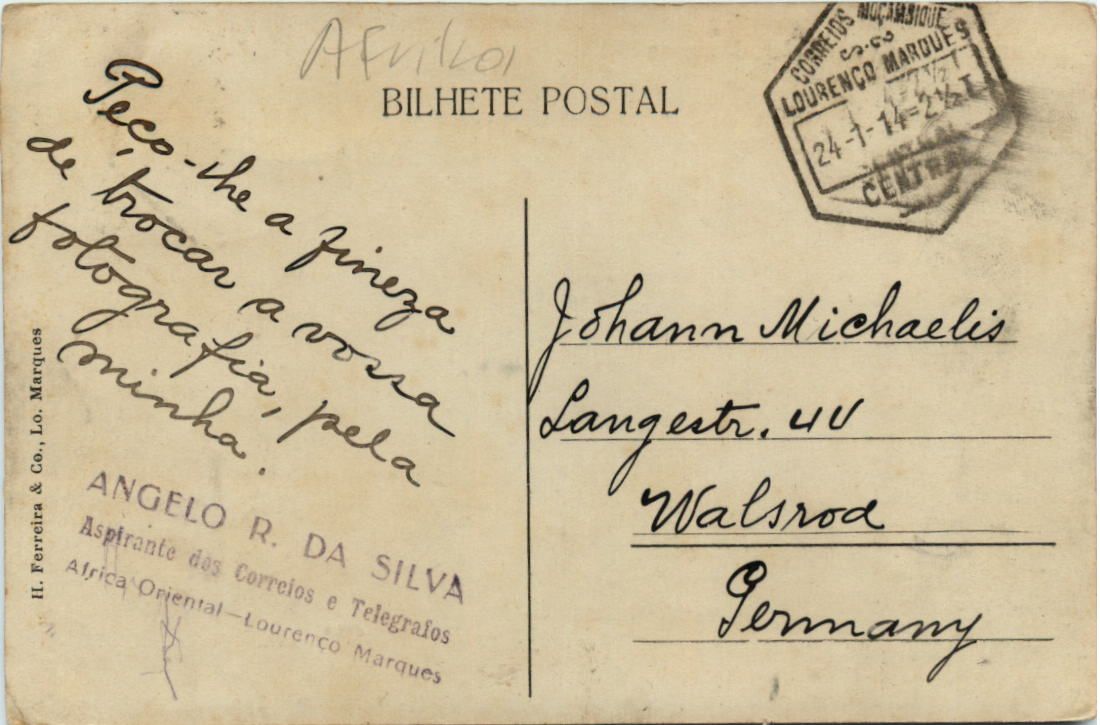 Afrika
BILHETE POSTAL
CORREIOS MOÇAMBIQUE
LOURENÇO MARQUES
24-1-14=2½T
CENTRAL
Peço-lhe a fineza
de trocar a vossa
fotografia, pela
minha.
ANGELO R. DA SILVA
Aspirante dos Correios e Telegrafos
Africa Oriental—Lourenço Marques
H. Ferreira & Co., Lo. Marques
Johann Michaelis
Langestr. 4U
Walsrod
Germany